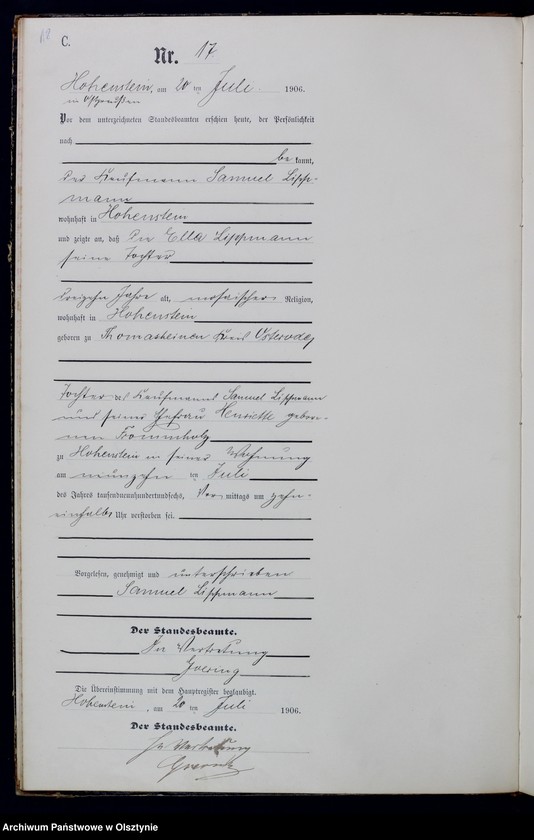 C.
Nr. 17.
Hohenstein, am 20 ten Juli 1906.
in Ostpreußen
Vor dem unterzeichneten Standesbeamten erschien heute, der Persönlichkeit
nach
be kannt,
der Kaufmann Samuel Lipp-
mann
wohnhaft in Hohenstein
und zeigte an, daß die Ella Lippmann
seine Tochter
dreizehn Jahre alt, mosaischer Religion,
wohnhaft in Hohenstein
geboren zu Thomasheinen Kreis Osterode,
Tochter des Kaufmanns Samuel Lippmann
und seiner Ehefrau Henriette gebore-
nen Frommholz
zu Hohenstein in seiner Wohnung
am neunzehn ten Juli
des Jahres tausendneunhundertundsechs, Vor mittags um zehn-
einhalb Uhr verstorben sei.
Vorgelesen, genehmigt und unterschrieben
Samuel Lippmann
Der Standesbeamte.
In Vertretung
Die Übereinstimmung mit dem Hauptregister beglaubigt.
Hohenstein, am 20 ten Juli 1906.
Der Standesbeamte.
In Vertretung
Archiwum Państwowe w Olsztynie